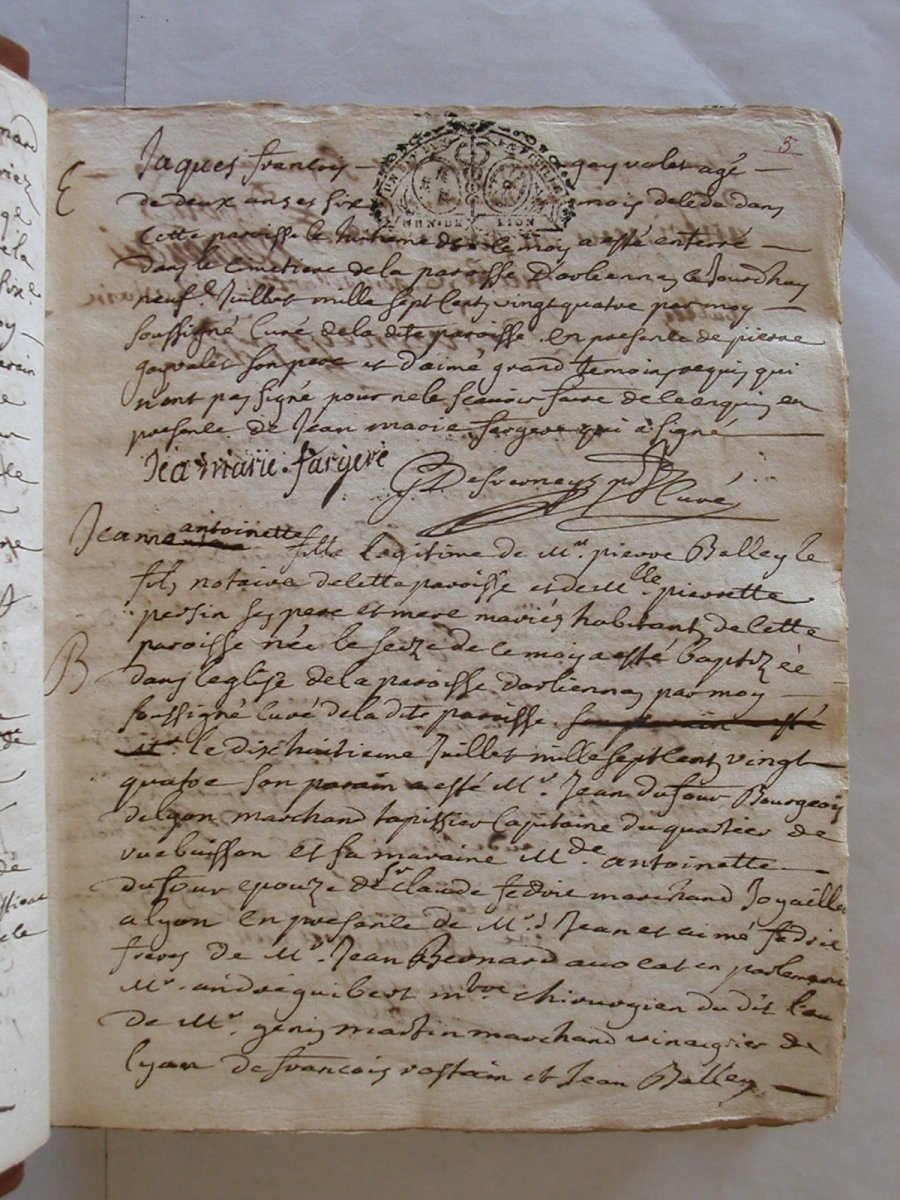 5
E
Jaques francois gayvalet agé
de deux ans et six mois decedé dans
cette paroisse le huitieme de ce moy a esté enterré
dans le cimetiere de la paroisse d'arbiennas ce jourdhuy
neufe Juillet mille sept cent vingt quatre par moy
soussigné curé de la dite paroisse en presence de pierre
gayvalet son pere et d'aimé grand temoins requis qui
n'ont pas signé pour ne le scavoir faire de ce enquis en
presence de Jean marie fargere qui a signé
Jea marie fargere
Desverneys curé
Jeanne antoinette fille legitime de Mr. pierre Balley le
fils notaire de cette paroisse et de Mlle. pierrette
persin ses pere et mere mariés habitants de cette
paroisse née le seize de ce moy a esté baptizée
B
dans leglise de la paroisse darbiennas par moy
soussigné curé de la dite paroisse
le dixhuitieme Juillet mille sept cent vingt
quatre son parain a esté Mr. Jean dufour Bourgeois
de lyon marchand tapissier Capitaine du quartier de
rue buisson et sa maraine Mde antoinette
dufour epouze de Sr claude fedrie marchand Joyaillier
a lyon en presence de Mrs Jean et aimé fedrie
freres de Mr. Jean Bernard avocat en parlement
Mr. andré guibert mtre chirurgien du dit lieu
de Mr. genis martin marchand vinaigrier de
lyon de francois rostain et Jean Balley